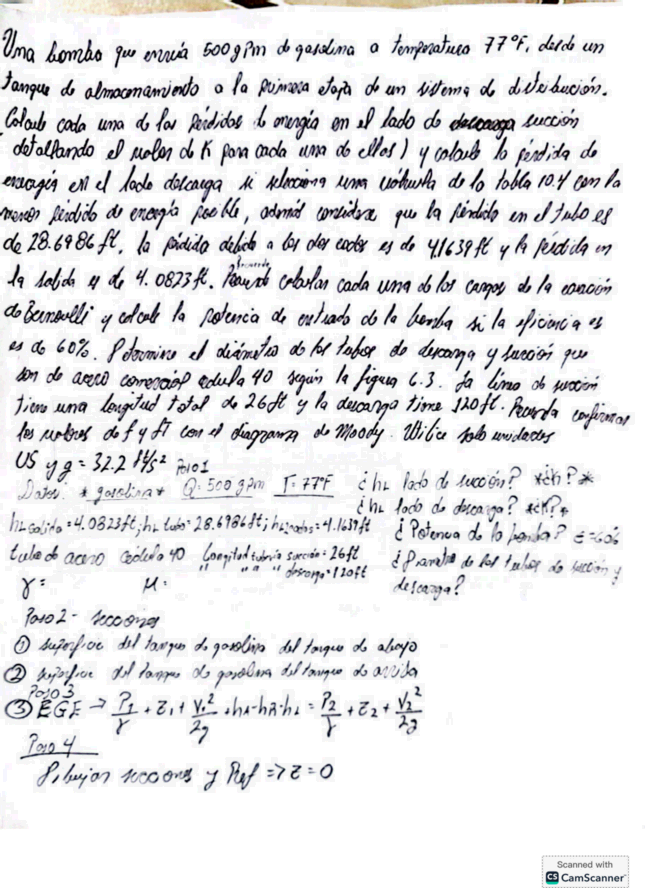 Una bomba que envía 500gpm de gasolina a temperatura 77°F, desde un
tanque de almacenamiento a la primera etapa de un sistema de distribución.
Calcule cada una de las pérdidas de energía en el lado de succión
(detallando el valor de K para cada una de ellas) y calcule la pérdida de
energía en el lado descarga si selecciona una válvula de la tabla 10.4 con la
menor pérdida de energía posible, además considere que la pérdida en el tubo es
de 28.6986ft, la pérdida debido a los dos codos es de 4.1639ft y la pérdida en
la salida es de 4.0823ft. calcular cada una de las cargas de la ecuación
de Bernoulli y calcule la potencia de entrada de la bomba si la eficiencia es
es de 60%. Determine el diámetro de los tubos de descarga y succión que
son de acero comercial cédula 40 según la figura 6.3. La línea de succión
tiene una longitud total de 26ft y la descarga tiene 120ft. Recuerda confirmar
los valores de f y fT con el diagrama de Moody. Utilice solo unidades
US y g = 32.2 ft/s² Paso1
Datos: * gasolina * Q= 500gpm T= 77°F ¿hL lado de succión? *¿K?*
¿hL lado de descarga? *¿K?*
hL salida = 4.0823ft; hL tubo = 28.6986ft; hL codos = 4.1639ft ¿Potencia de la bomba? E=60%
tubo de acero cédula 40 Longitud tubería succión = 26ft ¿Diametro de los tubos de succión y
" " " descarga = 120ft descarga?
γ= μ=
Paso 2- secciones
① superficie del tanque de gasolina del tanque de abajo
② superficie del tanque de gasolina del tanque de arriba
Paso 3
③ EGE → P1/γ + z1 + V1²/2g + hA - hR - hL = P2/γ + z2 + V2²/2g
Paso 4
Dibujar secciones y Ref => z = 0
Scanned with
CS CamScanner